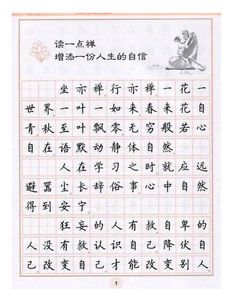 读一点禅
增添一份人生的自信
坐亦禅行亦禅一花一
世界一叶一如来春来花自
青秋至叶飘零无穷般若心
自在语默动静体自然
人在学习之时就应远
避嚣尘长辞俗事心中自然
得到安宁
狂妄的人有救自卑的
人没有救认识自己降伏自
己改变自己才能改变别人
1